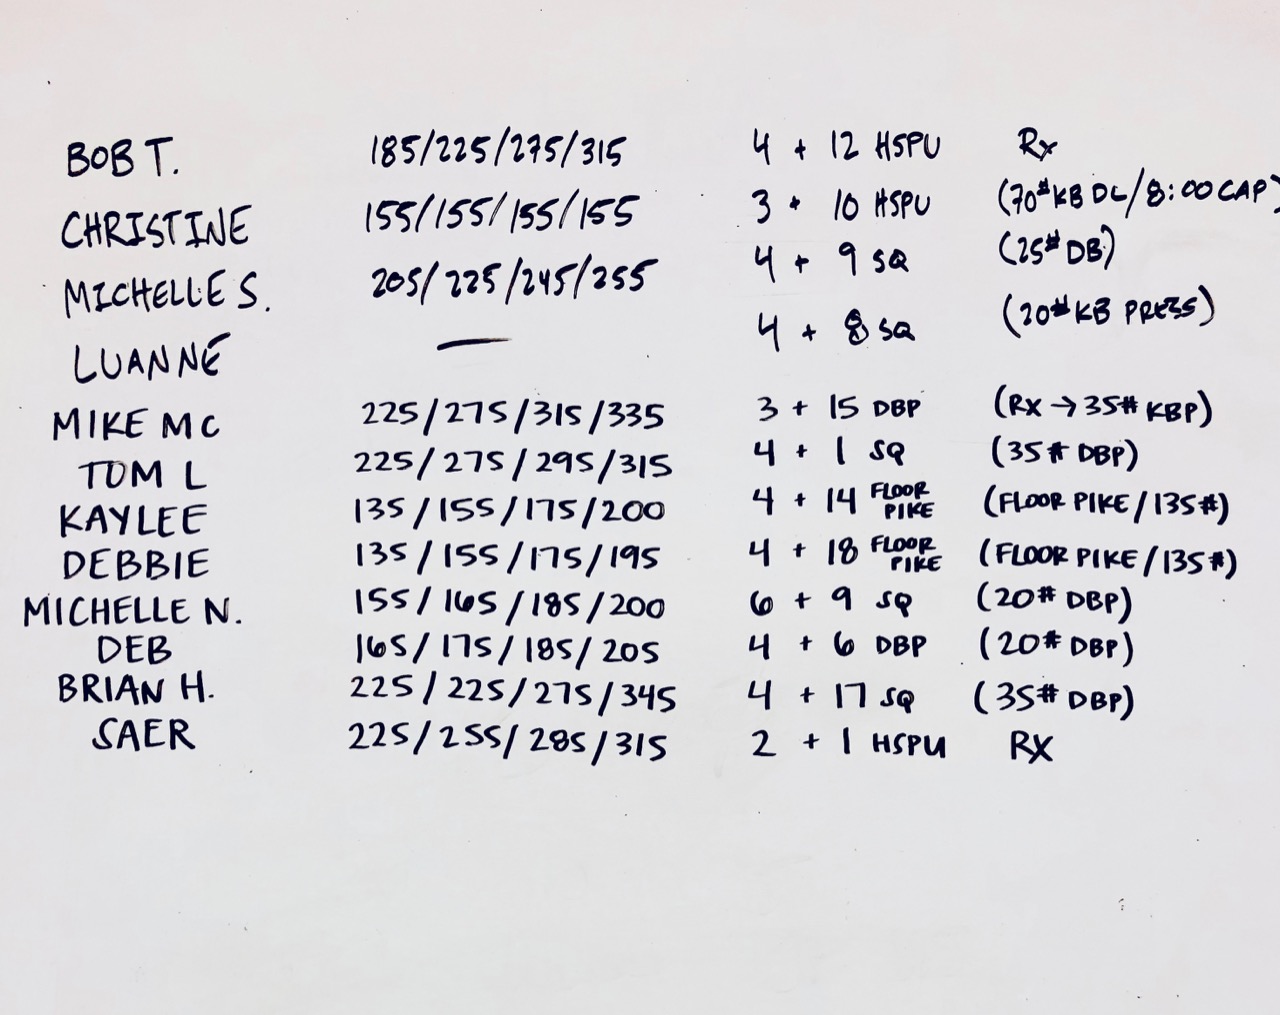 BOB T. 185/225/275/315 4 + 12 HSPU Rx
CHRISTINE 155/155/155/155 3 + 10 HSPU (70# KB DL/8:00 CAP)
MICHELLE S. 205/225/245/255 4 + 9 SQ (25# DB)
LUANNE — 4 + 8 SQ (20# KB PRESS)
MIKE MC 225/275/315/335 3 + 15 DBP (RX → 35# KBP)
TOM L 225/275/295/315 4 + 1 SQ (35# DBP)
KAYLEE 135/155/175/200 4 + 14 FLOOR PIKE (FLOOR PIKE/135#)
DEBBIE 135/155/175/195 4 + 18 FLOOR PIKE (FLOOR PIKE/135#)
MICHELLE N. 155/165/185/200 6 + 9 SQ (20# DBP)
DEB 165/175/185/205 4 + 6 DBP (20# DBP)
BRIAN H. 225/225/275/345 4 + 17 SQ (35# DBP)
SAER 225/255/285/315 2 + 1 HSPU RX